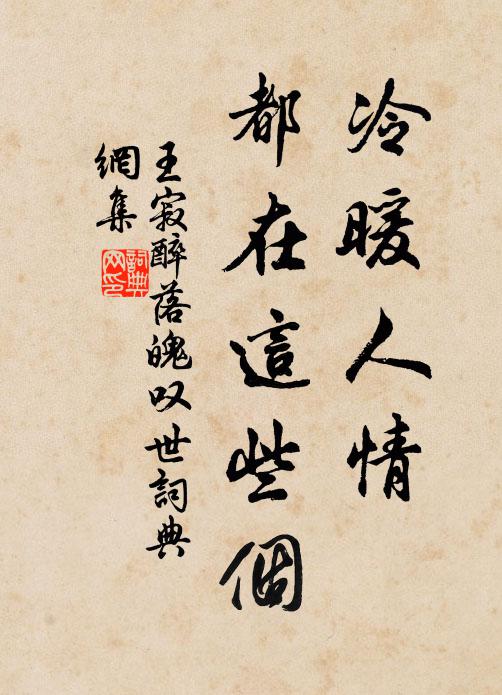 冷暖人情
都在這些個
王寂醉落魄叹世詞典
網集
詞典网印